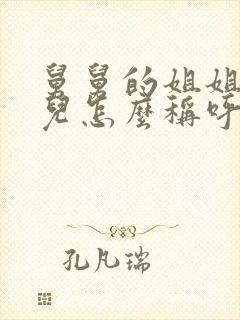 舅舅的姐姐
兒怎麼稱呼
孔凡瑞